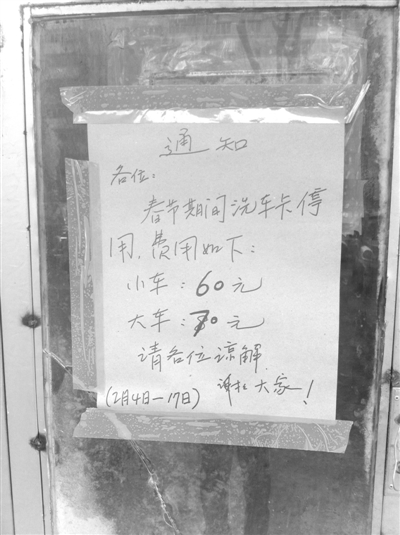 通知
各位:
春节期间洗车卡停
用,费用如下:
小车:60元
大车:70元
请各位谅解
谢谢大家!
(2月4日—17日)